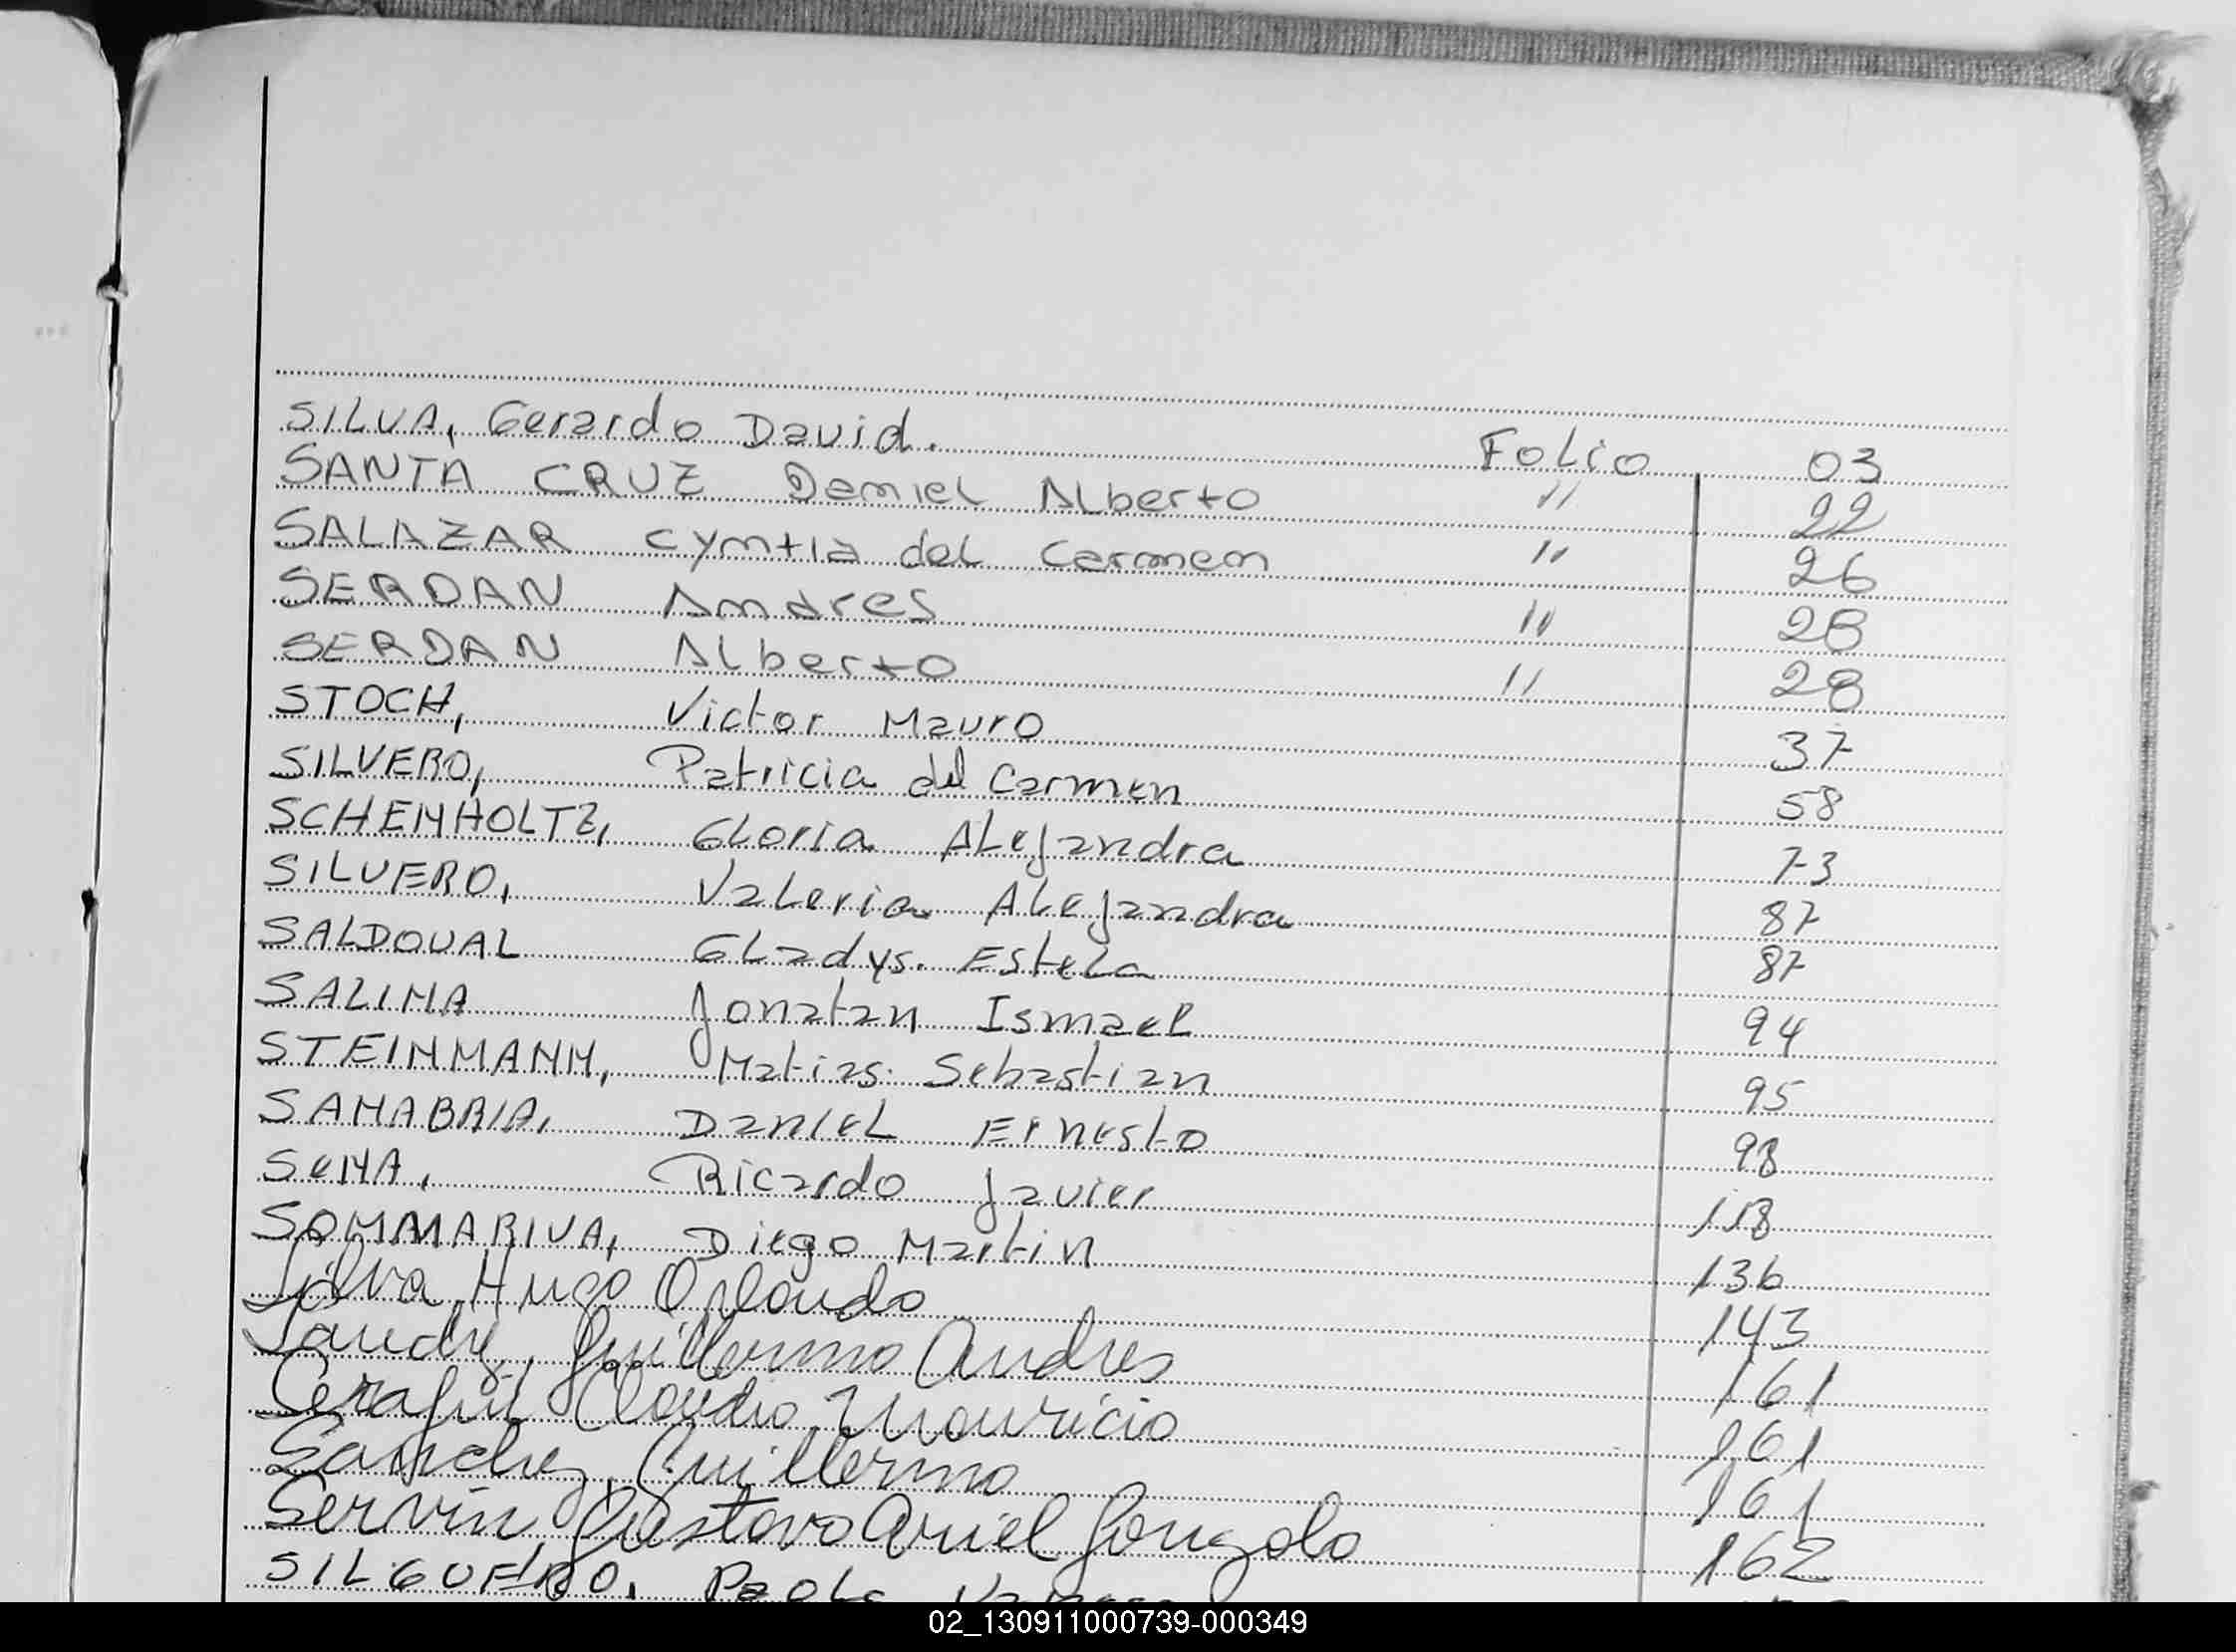 SILVA, Gerardo David. Folio 03
SANTA CRUZ Daniel Alberto " 22
SALAZAR Cyntia del Carmen " 26
SERDAN Andres " 28
SERDAN Alberto " 28
STOCH, Victor Mauro 37
SILVERO, Patricia del Carmen 58
SCHENHOLTZ, Gloria Alejandra 73
SILVERO, Valeria Alejandra 87
SALDOVAL Gladys Estela 87
SALINA Jonatan Ismael 94
STEINMANN, Matias Sebastian 95
SANABRIA, Daniel Ernesto 98
SENA, Ricardo Javier 118
SOMMARIVA, Diego Martin 136
Silva, Hugo Orlando 143
Guillermo Andres 161
Cerafin Claudio Mauricio 161
Sanchez, Guillermo 161
Servin Gustavo Ariel Gonzalo 162
SILGUERO, Paola
02_130911000739-000349